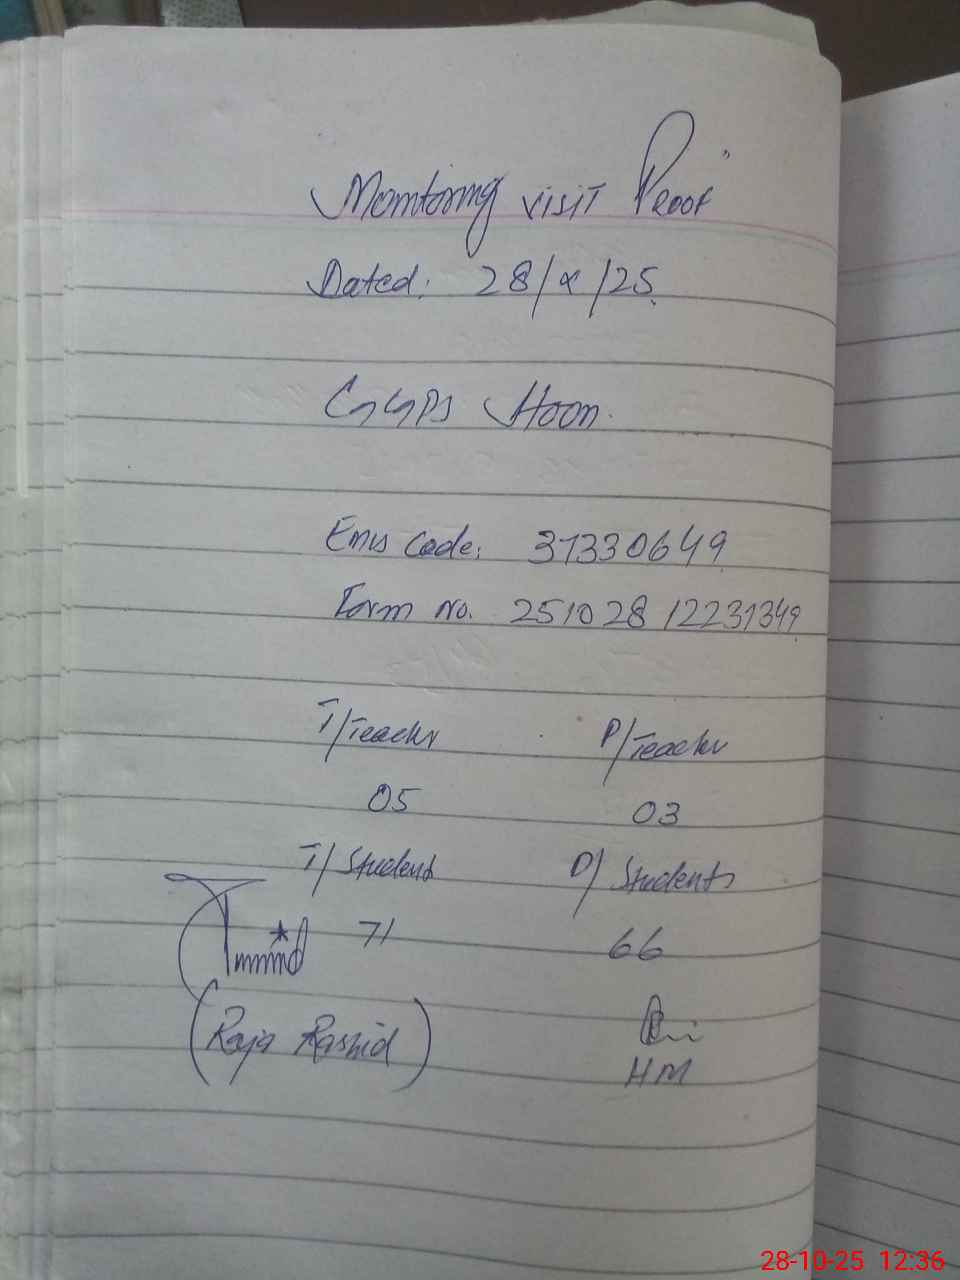 Monitoring visit Proof"
Dated: 28/x/25.
GGPS Hoon.
Emis Code: 31330649
Form No. 251028 12231349
T/Teacher P/Teacher
05 03
T/Student P/Students
71 66
(Raja Rashid)
HM
28-10-25 12:36